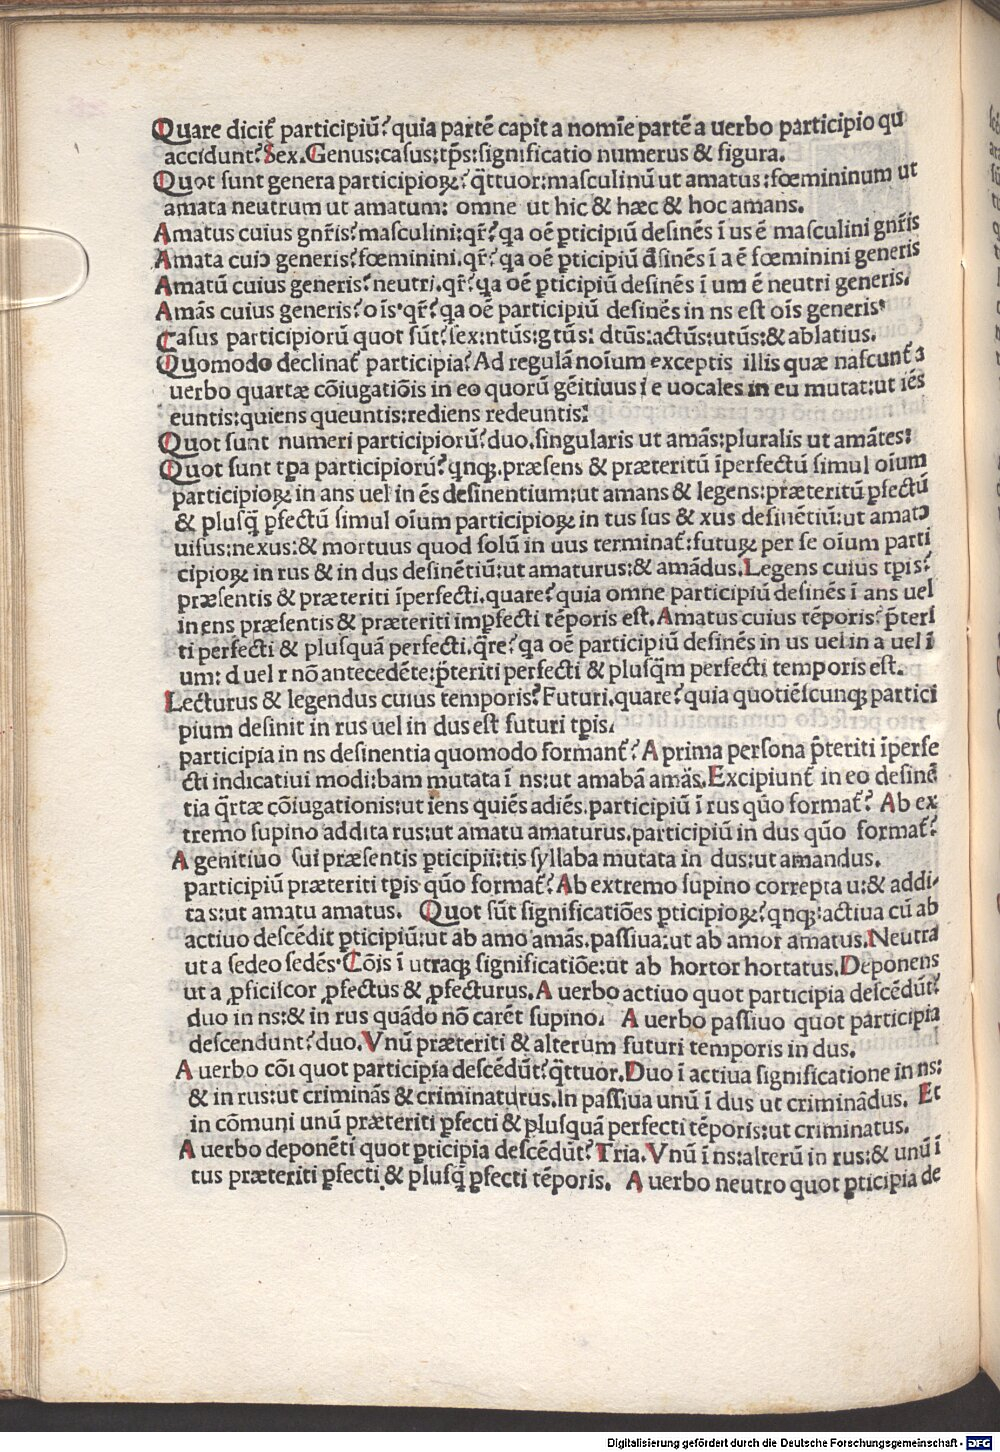 Quare dicit̃ participiũ? quia partẽ capit a nomīe partẽ a uerbo participio qu
accidunt? Sex. Genus: casus: tp̃s: significatio numerus & figura.
Quot sunt genera participioꝝ? q̃ttuor: masculinũ ut amatus: fœmininum ut
amata neutrum ut amatum: omne ut hic & hæc & hoc amans.
Amatus cuius gñris? masculini: qr̃? qa oẽ ꝑticipiũ desinẽs ĩ us ẽ masculini gnr̃is
Amata cuiꝰ generis? fœminini. qr̃? qa oẽ ꝑticipiũ dẽsinẽs ĩ a ẽ fœminini generis
Amatũ cuius generis? neutri. qr̃? qa oẽ ꝑticipiũ desinẽs ĩ um ẽ neutri generis.
Amãs cuius generis? oĩs. qr̃? qa oẽ participiũ desinẽs in ns est oĩs generis.
Casus participiorũ quot sũt? sex: ntũs: gtũs: dtũs: actũs: utũs: & ablatius.
Quomodo declinat̃ participia? Ad regulã noĩum exceptis illis quæ nascunt̃ a
uerbo quartæ cõiugatiõis in eo quorũ gẽitiuus i e uocales in eu mutat: ut iẽs
euntis: quiens queuntis: rediens redeuntis:
Quot sunt numeri participiorũ? duo. singularis ut amãs: pluralis ut amãtes:
Quot sunt tp̃a participiorũ? qnqꝫ. præsens & præteritũ ĩperfectũ simul oĩum
participioꝝ in ans uel in ẽs desinentium: ut amans & legens: præteritũ ꝑfectũ
& plusq̃ ꝑfectũ simul oĩum participioꝝ in tus sus & xus desinẽtiũ: ut amatꝰ
uisus: nexus: & mortuus quod solũ in uus terminat̃: futuꝝ per se oĩum parti
cipioꝝ in rus & in dus desinẽtiũ: ut amaturus: & amãdus. Legens cuius tp̃is?
præsentis & præteriti ĩperfecti. quare? quia omne participiũ desinẽs ĩ ans uel
in ens præsentis & præteriti impfecti tẽporis est. Amatus cuius tẽporis? p̃teri
ti perfecti & plusquã perfecti. q̃re? qa oẽ participiũ desinẽs in us uel in a uel ĩ
um: d uel r nõ antecedẽte: p̃teriti perfecti & plusq̃m perfecti temporis est.
Lecturus & legendus cuius temporis? Futuri. quare? quia quotiẽscunqꝫ partici
pium desinit in rus uel in dus est futuri tp̃is.
participia in ns desinentia quomodo formant̃? A prima persona p̃teriti ĩperfe
cti indicatiui modi: bam mutata ĩ ns: ut amabã amãs. Excipiunt̃ in eo desinẽ
tia q̃rtæ cõiugationis: ut iens quiẽs adiẽs. participiũ ĩ rus quõ format̃? Ab ex
tremo supino addita rus: ut amatu amaturus. participiũ in dus quõ format̃?
A genitiuo sui præsentis ꝑticipii: tis syllaba mutata in dus: ut amandus.
participiũ præteriti tp̃is quõ format̃? Ab extremo supino correpta u: & addi-
ta s: ut amatu amatus. Quot sũt significatiões ꝑticipioꝝ? qnqꝫ: actiua cũ ab
actiuo descẽdit ꝑticipiũ: ut ab amo amãs. passiua: ut ab amor amatus. Neutra
ut a sedeo sedẽs. Cõis ĩ utraqꝫ significatiõe: ut ab hortor hortatus. Deponens
ut a ꝓficiscor ꝓfectus & ꝓfecturus. A uerbo actiuo quot participia descẽdũt?
duo in ns: & in rus quãdo nõ carẽt supino. A uerbo passiuo quot participia
descendunt? duo. Vnũ præteriti & alterum futuri temporis in dus.
A uerbo cõi quot participia descẽdũt? q̃ttuor. Duo ĩ actiua significatione in ns:
& in rus: ut criminãs & criminaturus. In passiua unũ ĩ dus ut criminãdus. Et
in cõmuni unũ præteriti ꝑfecti & plusquã perfecti tẽporis: ut criminatus.
A uerbo deponẽti quot ꝑticipia descẽdũt? Tria. Vnũ ĩ ns: alterũ in rus: & unũ ĩ
tus præteriti ꝑfecti & plusq̃ ꝑfecti tẽporis. A uerbo neutro quot ꝑticipia de
Digitalisierung gefördert durch die Deutsche Forschungsgemeinschaft - DFG